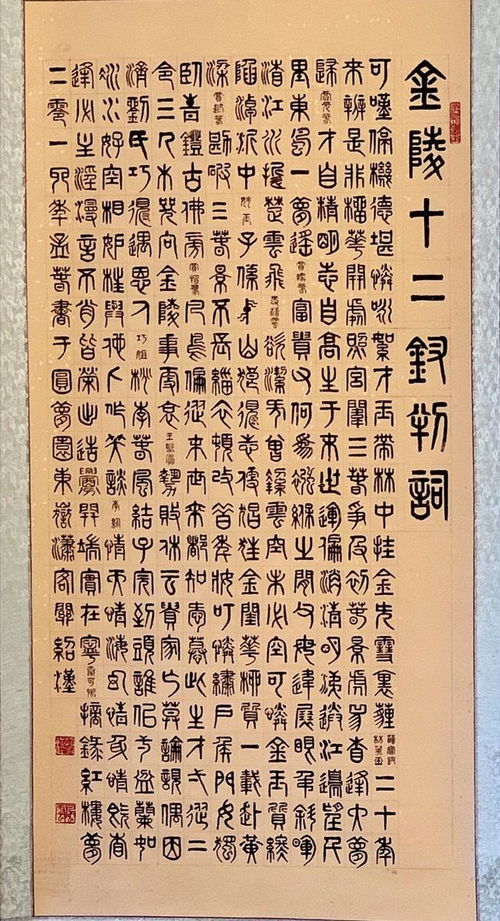 金陵十二釵判詞
可嘆停機德堪憐咏絮才玉帶林中挂金簪雪裏薶 薛寶釵 林黛玉 二十年
來辨是非榴華開處照宮闈三春爭及初春景虎兕相逢大夢
歸 賈元春 才自精明志自高生于末世運偏消清明涕送江邊望千
里東風一夢遙 賈探春 富貴又何爲襁褓之間父母違展眼弔斜暉
湘江水逝楚雲飛 史湘雲 欲潔何曾潔雲空未必空可憐金玉質終
陷淖泥中 妙玉 子係中山狼得志便猖狂金閨華柳質一載赴黃
梁 賈迎春 勘破三春景不長緇衣頓改昔年妝可憐繡戶侯門女獨
臥青鐙古佛旁 賈惜春 凡鳥偏從末世來都知愛慕此生才一從二
令三人木哭向金陵事更哀 王熙鳳 勢敗休云貴家亡莫論親偶因
濟劉氏巧得遇恩人 巧姐 桃李春風結子完到頭誰似一盆蘭如
冰水好空相妒枉與他人作笑談 李紈 情天情海幻情身情既相
逢必主淫漫言不肖皆榮出造釁開端實在寧 秦可卿 摘錄紅樓夢
二零一九年孟春書于圓夢園東嶽瀟客紹